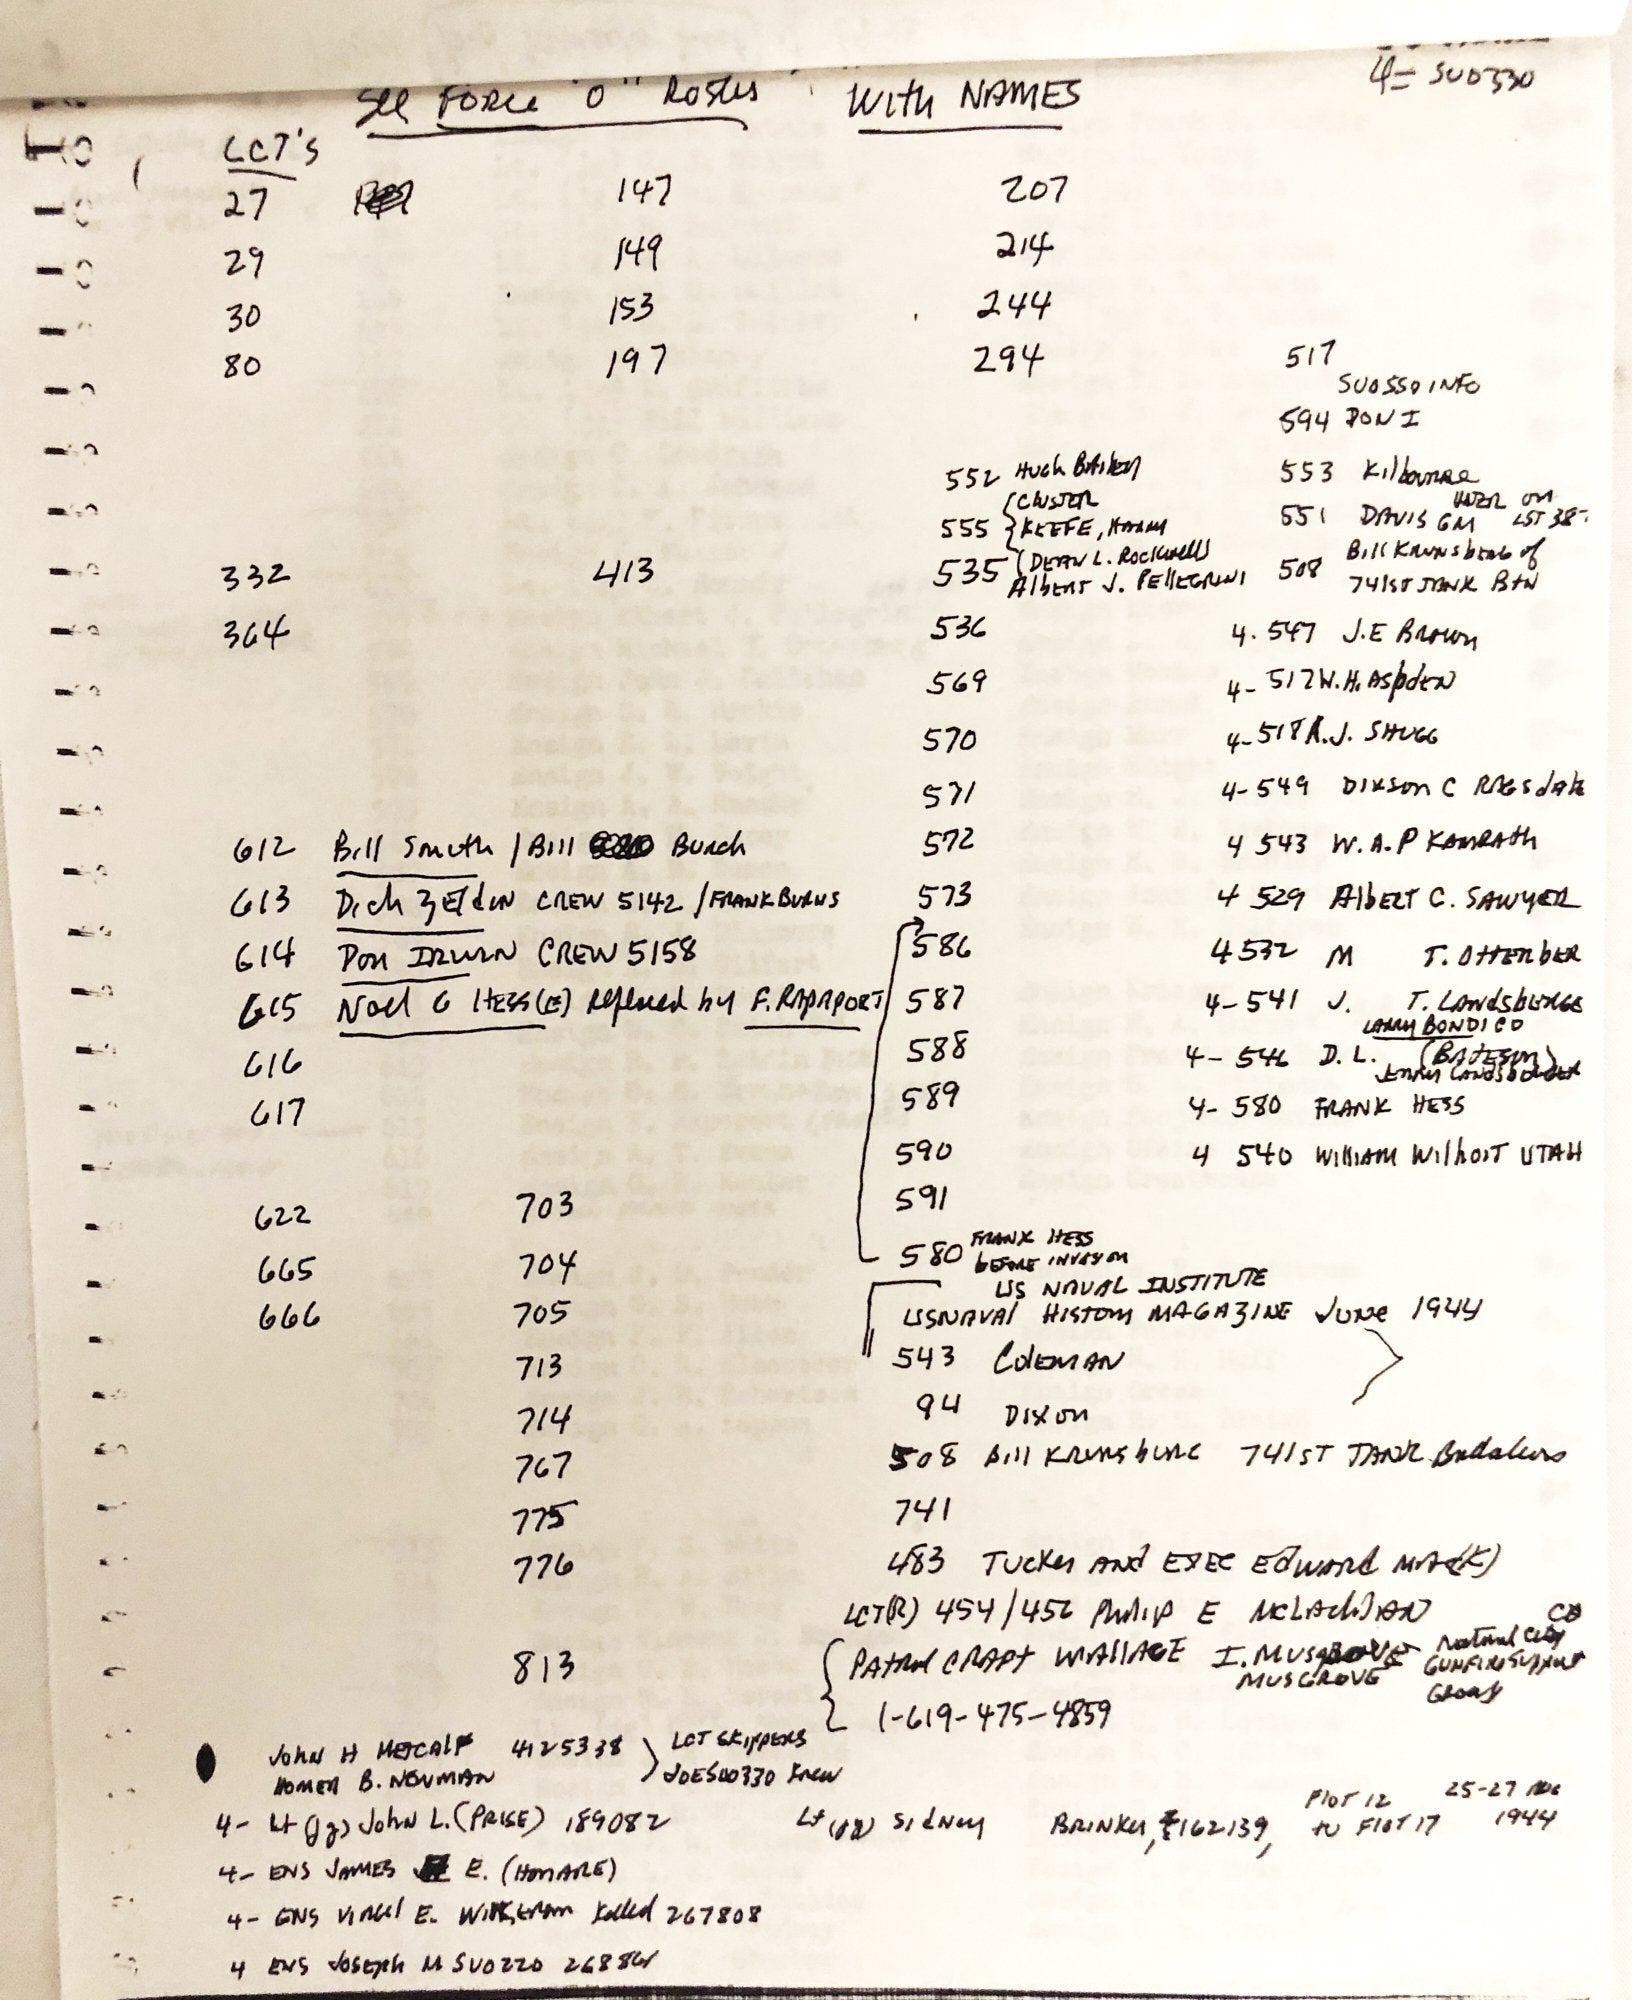 4= SUOZZO
See FORCE "O" Roster WITH NAMES
LCT's
27 147 207
29 149 214
30 153 244
80 197 294 517
SUOSSO INFO
594 DON I
552 HUGH BAILEY 553 Kilbourne
(CLUSTER
555 KEEFE, HARRY 551 DAVIS GM LATER ON LST 38
332 413 535 (DEAN L. ROCKWELL) 508 Bill KRUNSBERG of
Albert J. PELLEGRINI 741ST TANK BtN
364 536 4. 547 J.E BROWN
569 4- 517 W.H. ASpdEN
570 4- 518 R.J. SHUGG
571 4-549 DIXSON C RAGSdALE
612 Bill Smith / Bill Burch 572 4 543 W.A.P KAMRATH
613 Dick ZEldIN CREW 5142 / FRANK BURNS 573 4 529 AlbERT C. SAWYER
614 DON IRWIN CREW 5158 586 4 532 M T. OTTERbER
615 Noel G HESS(E) Replaced by F. RAPAPORT 587 4-541 J. T. LANDSbERGE
LARRY BONDICO
616 588 4- 546 D.L. (BATESON)
JERRY LANDSBERGER
617 589 4- 580 FRANK HESS
590 4 540 WILLIAM WilhoIT UTAH
622 703 591
665 704 580 FRANK HESS
BEFORE INVASION
US NAVAL INSTITUTE
666 705 US NAVAL HISTORY MAGAZINE JUNE 1944
713 543 COLEMAN
714 94 DIXON
767 508 Bill KRUNSBURG 741ST TANK Battalion
775 741
776 483 TUCKER AND EXEC EDWARD MAC(K)
LCT(R) 454/456 Philip E McLACHLAN
813 PATROL CRAFT WALLACE I. MUSGROVE National City CA
MUSGROVE GUNFIRE SUPPORT
Group
1-619-475-4859
JOHN H METCALF 4125338 LCT SKIPPERS
HOMER B. NEWMAN JOE SUOZZO KNEW
4- Lt (jg) JOHN L. (PRISE) 189082 Lt (jg) Sidney BRINKER, 162139, FLOT 12 to FLOT 17 25-27 1944
4- ENS JAMES E. (HOMARE)
4- ENS VIRGEL E. Killed 267808
4 ENS JOSEPH M SUOZZO